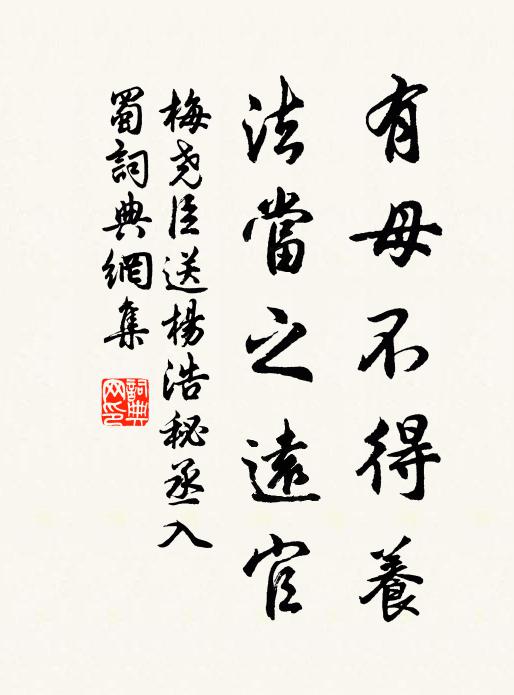 有母不得養
法當之遠官
梅尧臣送楊浩秘丞入
蜀詞典網集
詞典
网印